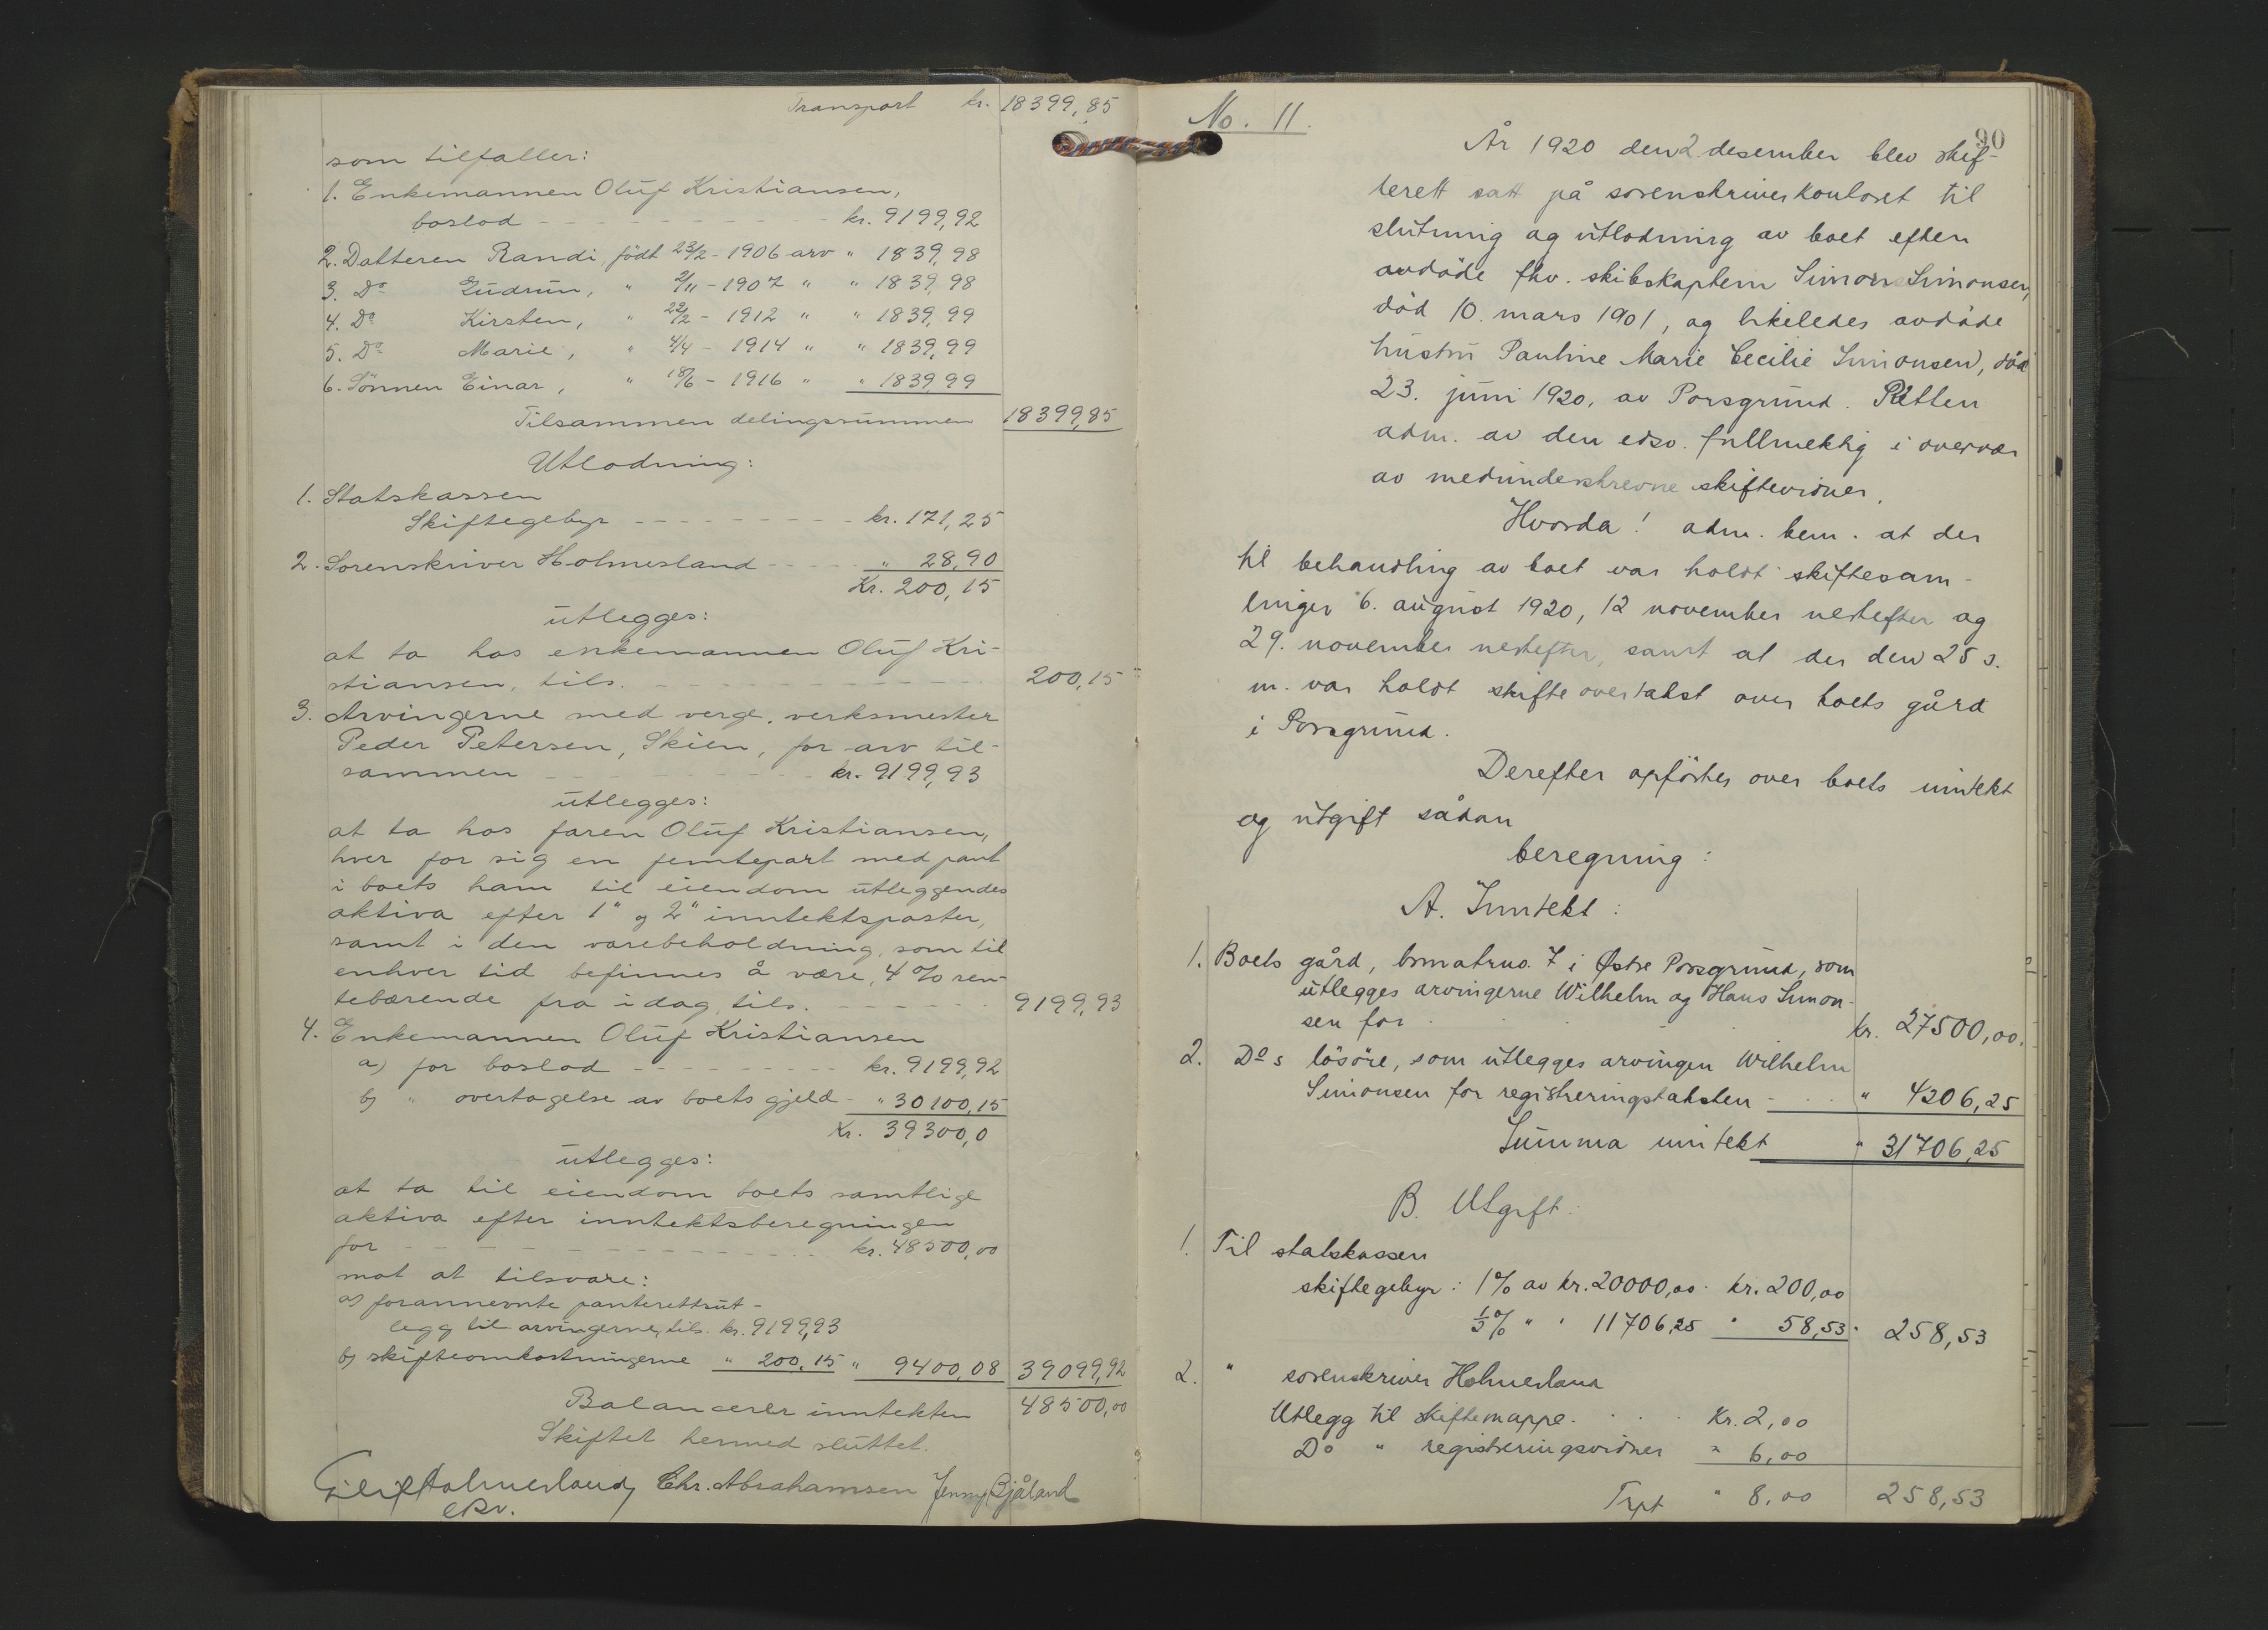 Transport kr. 18399,85
som tilfaller:
1. Enkemannen Oluf Kristiansen,
boslod - - - - - - - kr. 9199,92
2. Datteren Randi, född 23/2 - 1906 arv " 1839,98
3. Do Gudrun, " 2/11 - 1907 " " 1839,98
4. Do Kirsten, " 22/2 - 1912 " " 1839,99
5. Do Marie, " 4/4 - 1914 " " 1839,99
6. Sönnen Einar, " 18/6 - 1916 " " 1839,99
Tilsammen delingssummen 18399,85
Utlodning:
1. Statskassen
Skiftegebyr - - - - - - - kr. 171,25
2. Sorenskriver Holmesland - - - " 28,90
Kr. 200,15
utlegges:
at ta hos enkemannen Oluf Kri-
stiansen, tils. - - - - - - - 200,15
3. Arvingerne med verge, verksmester
Peder Petersen, Skien, for arv til-
sammen - - - - - - - kr. 9199,93
utlegges:
at ta hos faren Oluf Kristiansen,
hver for sig en femtepart med pant
i boets ham til eiendom utleggendes
aktiva efter 1" og 2" inntektsposter,
samt i den varebeholdning, som til
enhver tid befinnes å være, 4 % ren-
tebærende fra idag, tils. - - - - - 9199,93
4. Enkemannen Oluf Kristiansen
a) for boslod - - - - - - - kr. 9199,92
b) " overtagelse av boets gjeld - " 30100,15
Kr. 39300,0
utlegges:
at ta til eiendom boets samtlige
aktiva efter inntektsberegningen
for - - - - - - - - - - kr. 48500,00
mot at tilsvare:
a) forannevnte panterettsut-
legg til arvingerne, tils. kr. 9199,93
b) skifteomkostningerne " 200,15 " 9400,08 39099,92
Balancerer inntekten 48500,00
Skiftet hermed sluttet.
Holmesland Chr. Abrahamsen Jenny Bjåland
No. 11.
90
År 1920 den 2 desember blev skif-
terett satt på sorenskriverkontoret til
slutning og utlodning av boet efter
avdöde fhv. skibskaptein Simon Simonsen,
död 10. mars 1901, og likeledes avdöde
hustru Pauline Marie Cecilie Simonsen, död
23. juni 1920, av Porsgrund. Retten
adm. av den edsv. fullmektig i overvær
av medunderskrevne skiftevidner.
Hvorda! adm. bem. at der
til behandling av boet var holdt skiftesam-
linger 6. august 1920, 12 november nestefter og
29. november nestefter, samt at der den 25 s.
m. var holdt skifteovertakst over boets gård
i Porsgrund.
Derefter opförtes over boets inntekt
og utgift sådan
beregning:
A. Inntekt:
1. Boets gård, bmatrno. 7 i Østre Porsgrund, som
utlegges arvingerne Wilhelm og Hans Simon-
sen for . . . kr. 27500,00.
2. Do s lösöre, som utlegges arvingen Wilhelm
Simonsen for registreringstaksten - . . " 4206,25
Summa inntekt " 31706,25
B. Utgift:
1. Til statskassen
skiftegebyr: 1 % av kr. 20000,00 kr. 200,00
1/2 % " " 11706,25 " 58,53 " 258,53
2. " sorenskriver Holmesland
Utlegg til skiftemappe . . . Kr. 2,00
Do " registreringsvidner " 6,00
Trpt " 8,00 258,53